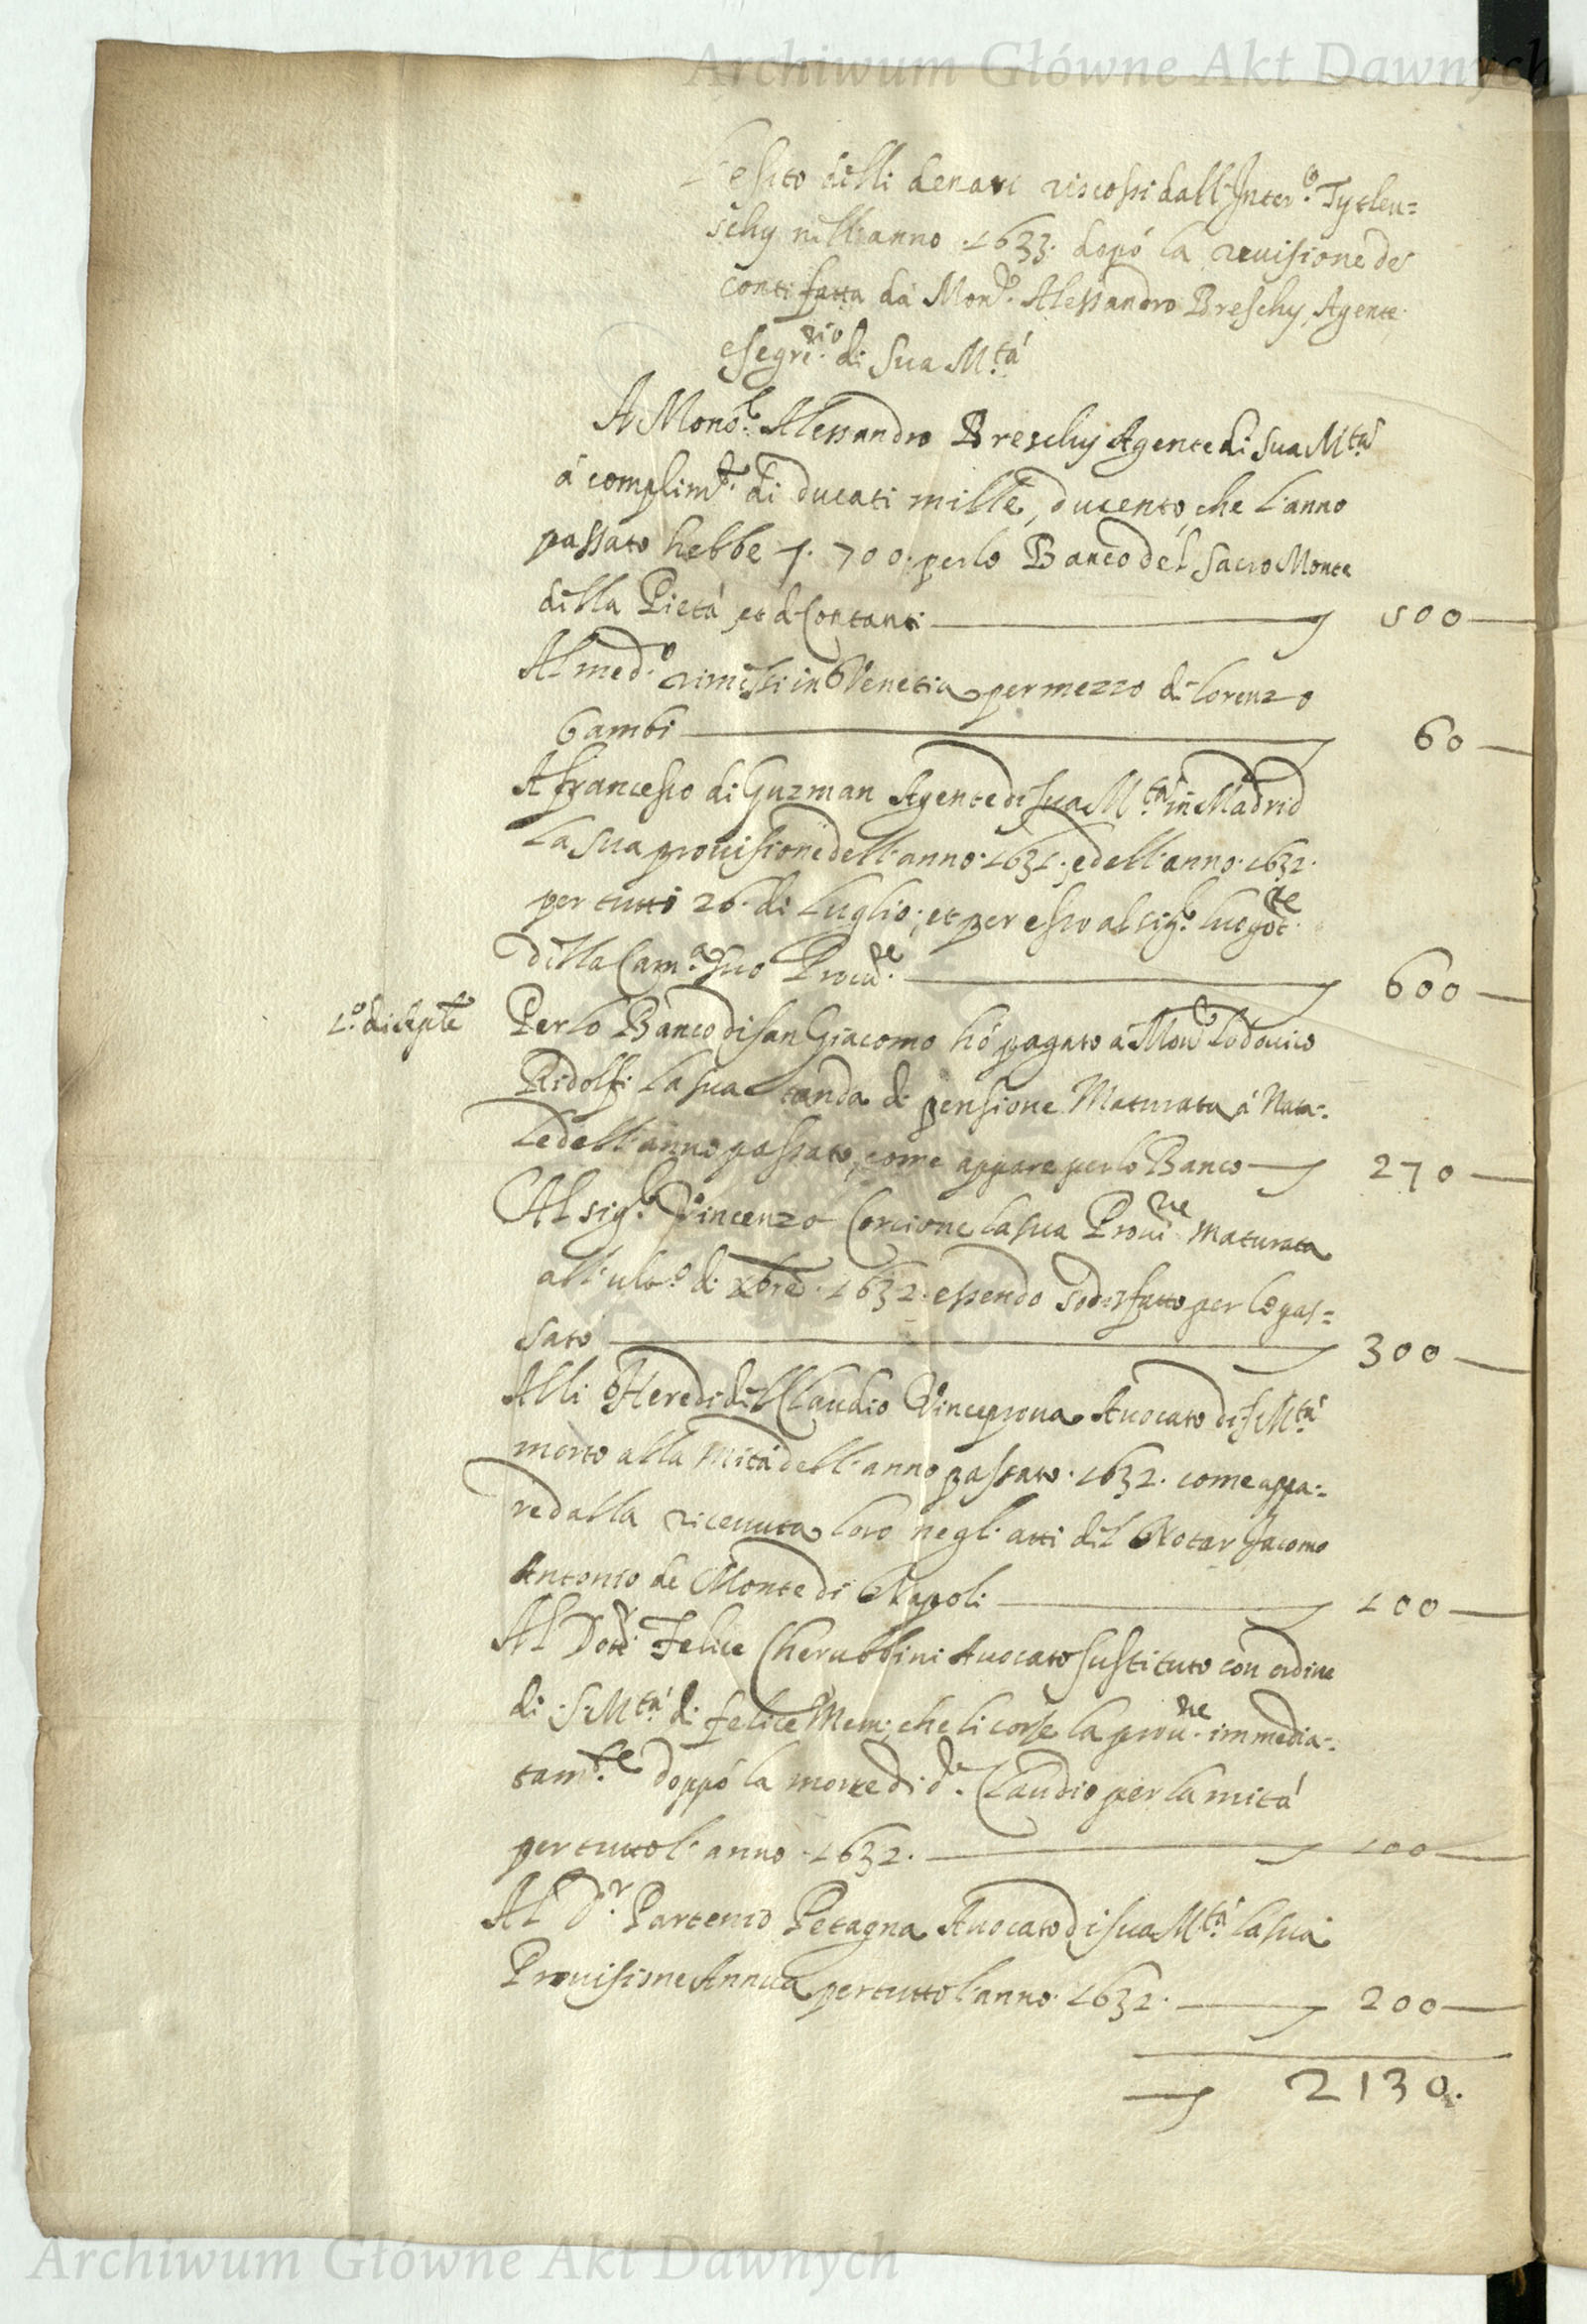 Archiwum Główne Akt Dawnych
L'esito delli denari riscossi dall' Inter.º Tytleu=
schy nell'anno .1633. dopó la reuisione de
conti fatta dá Mons.r Alessandro Breschy, Agente
e segre.rio di Sua M.tá
A Mons.r Alessandro Breschy Agente di sua M.tá
á complim.to di ducati mille, ducento, che l'anno
passato hebbe 700. per lo Banco del Sacro Monte
della Pietá, et di Contanti 500
Al med.º rimessi in Venetia per mezzo di Lorenzo
Gambi 60
A francesco di Guzman Agente di sua M.tá in Madrid
la sua prouisione dell'anno .1631. e dell'anno .1632.
per tutti 26. di Luglio, et per esso al sig.r luogote
della Cam.a suo Procu.re 600
1.º di septe Per lo Banco di san Giacomo hó pagato á Mons.r Lodouico
Ridolfi la sua tanda di pensione Maturata á Nata=
le dell'anno passato, come appare per lo Banco 270
Al sig.r Vincenzo Corcione la sua Proui.ne maturata
all'ult.º di xbre .1632. essendo sodisfatto per lo pas=
sato 300
Alli Heredi del Claudio Vinceproua Auocato di S. M.tá
morto alla mitá dell'anno passato .1632. come appa=
re dalla riceuuta loro negl'atti del Notar Jacomo
Antonio de Monte di Napoli 100
Al Dott.r Felice Cherubbini Auocato sustituto con ordine
di S. M.tá di felice Mem. che li corse la proui.ne immedia=
tam.te doppó la morte di d.º Claudio per la mitá
per tutto l'anno .1632. 100
Al D.r Partenio Petagna Auocato di sua M.tá la sua
Prouisione Annua per tutto l'anno .1632. 200
2130.
Archiwum Główne Akt Dawnych